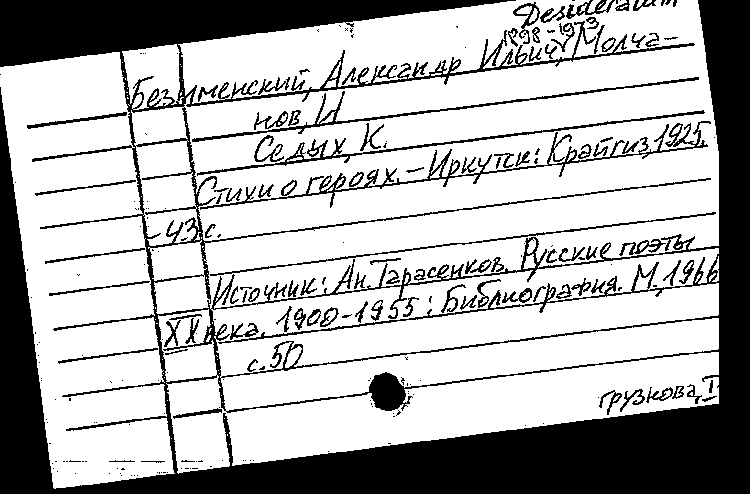 Desideratum
1898-1973
Безыменский, Александр Ильич, Молча-
нов, И
Седых, К.
Стихи о героях. - Иркутск: Крайгиз, 1925.
- 43 с.
Источник: Ан. Тарасенков. Русские поэты
XX века. 1900-1955: Библиография. М., 1966
с. 50
грузкова, Т